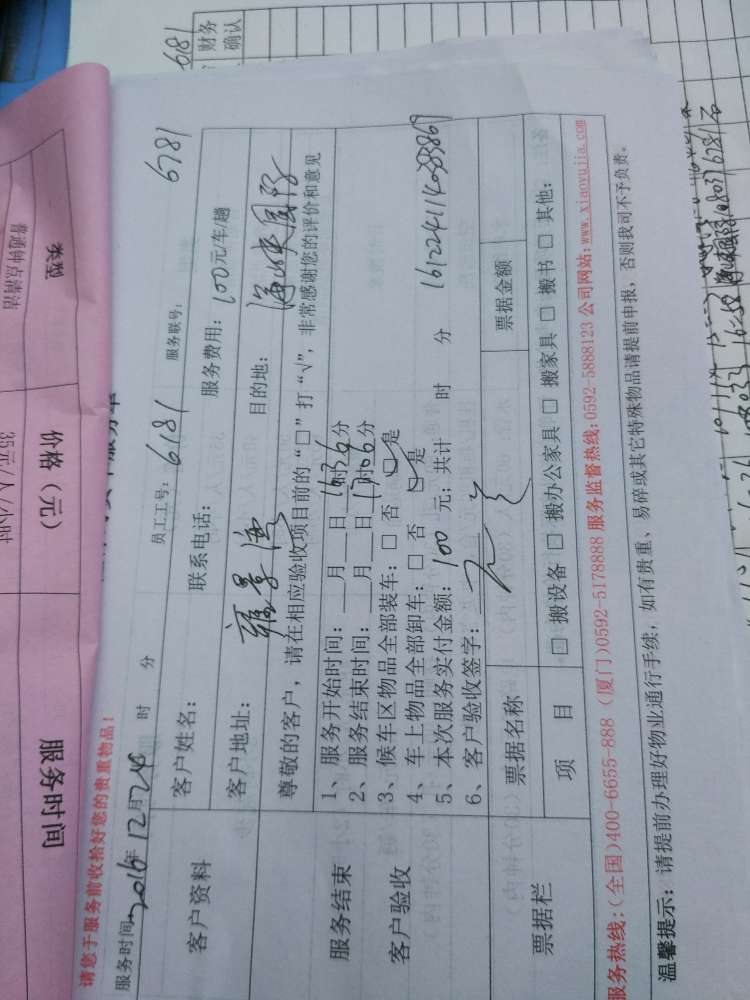 类型
价格（元）
服务时间
普通钟点清洁
35元/人/小时
财务
确认
6181
请您于服务前收拾好您的贵重物品！
服务时间：2016年12月24日 时 分
员工工号：6181
服务联号：6781
客户资料
客户姓名：
联系电话：
服务费用：100元/车/趟
客户地址：
目的地：
尊敬的客户，请在相应验收项目前的“□”打“√”，非常感谢您的评价和意见
服务结束
客户验收
1、服务开始时间：__月__日16时36分
2、服务结束时间：__月__日17时06分
3、候车区物品全部装车：□ 否 ☑ 是
4、车上物品全部卸车：□ 否 ☑ 是
5、本次服务实付金额：100 元；共计 时 分
1612241114083869
6、客户验收签字：
票据栏
票据名称
票据金额
项 目
□ 搬设备 □ 搬办公家具 □ 搬家具 □ 搬书 □ 其他：
服务热线：（全国）400-6655-888（厦门）0592-5178888 服务监督热线：0592-5888123 公司网站：www.xiaoyujia.com
温馨提示：请提前办理好物业通行手续，如有贵重、易碎或其它特殊物品请提前申报，否则我司不予负责。